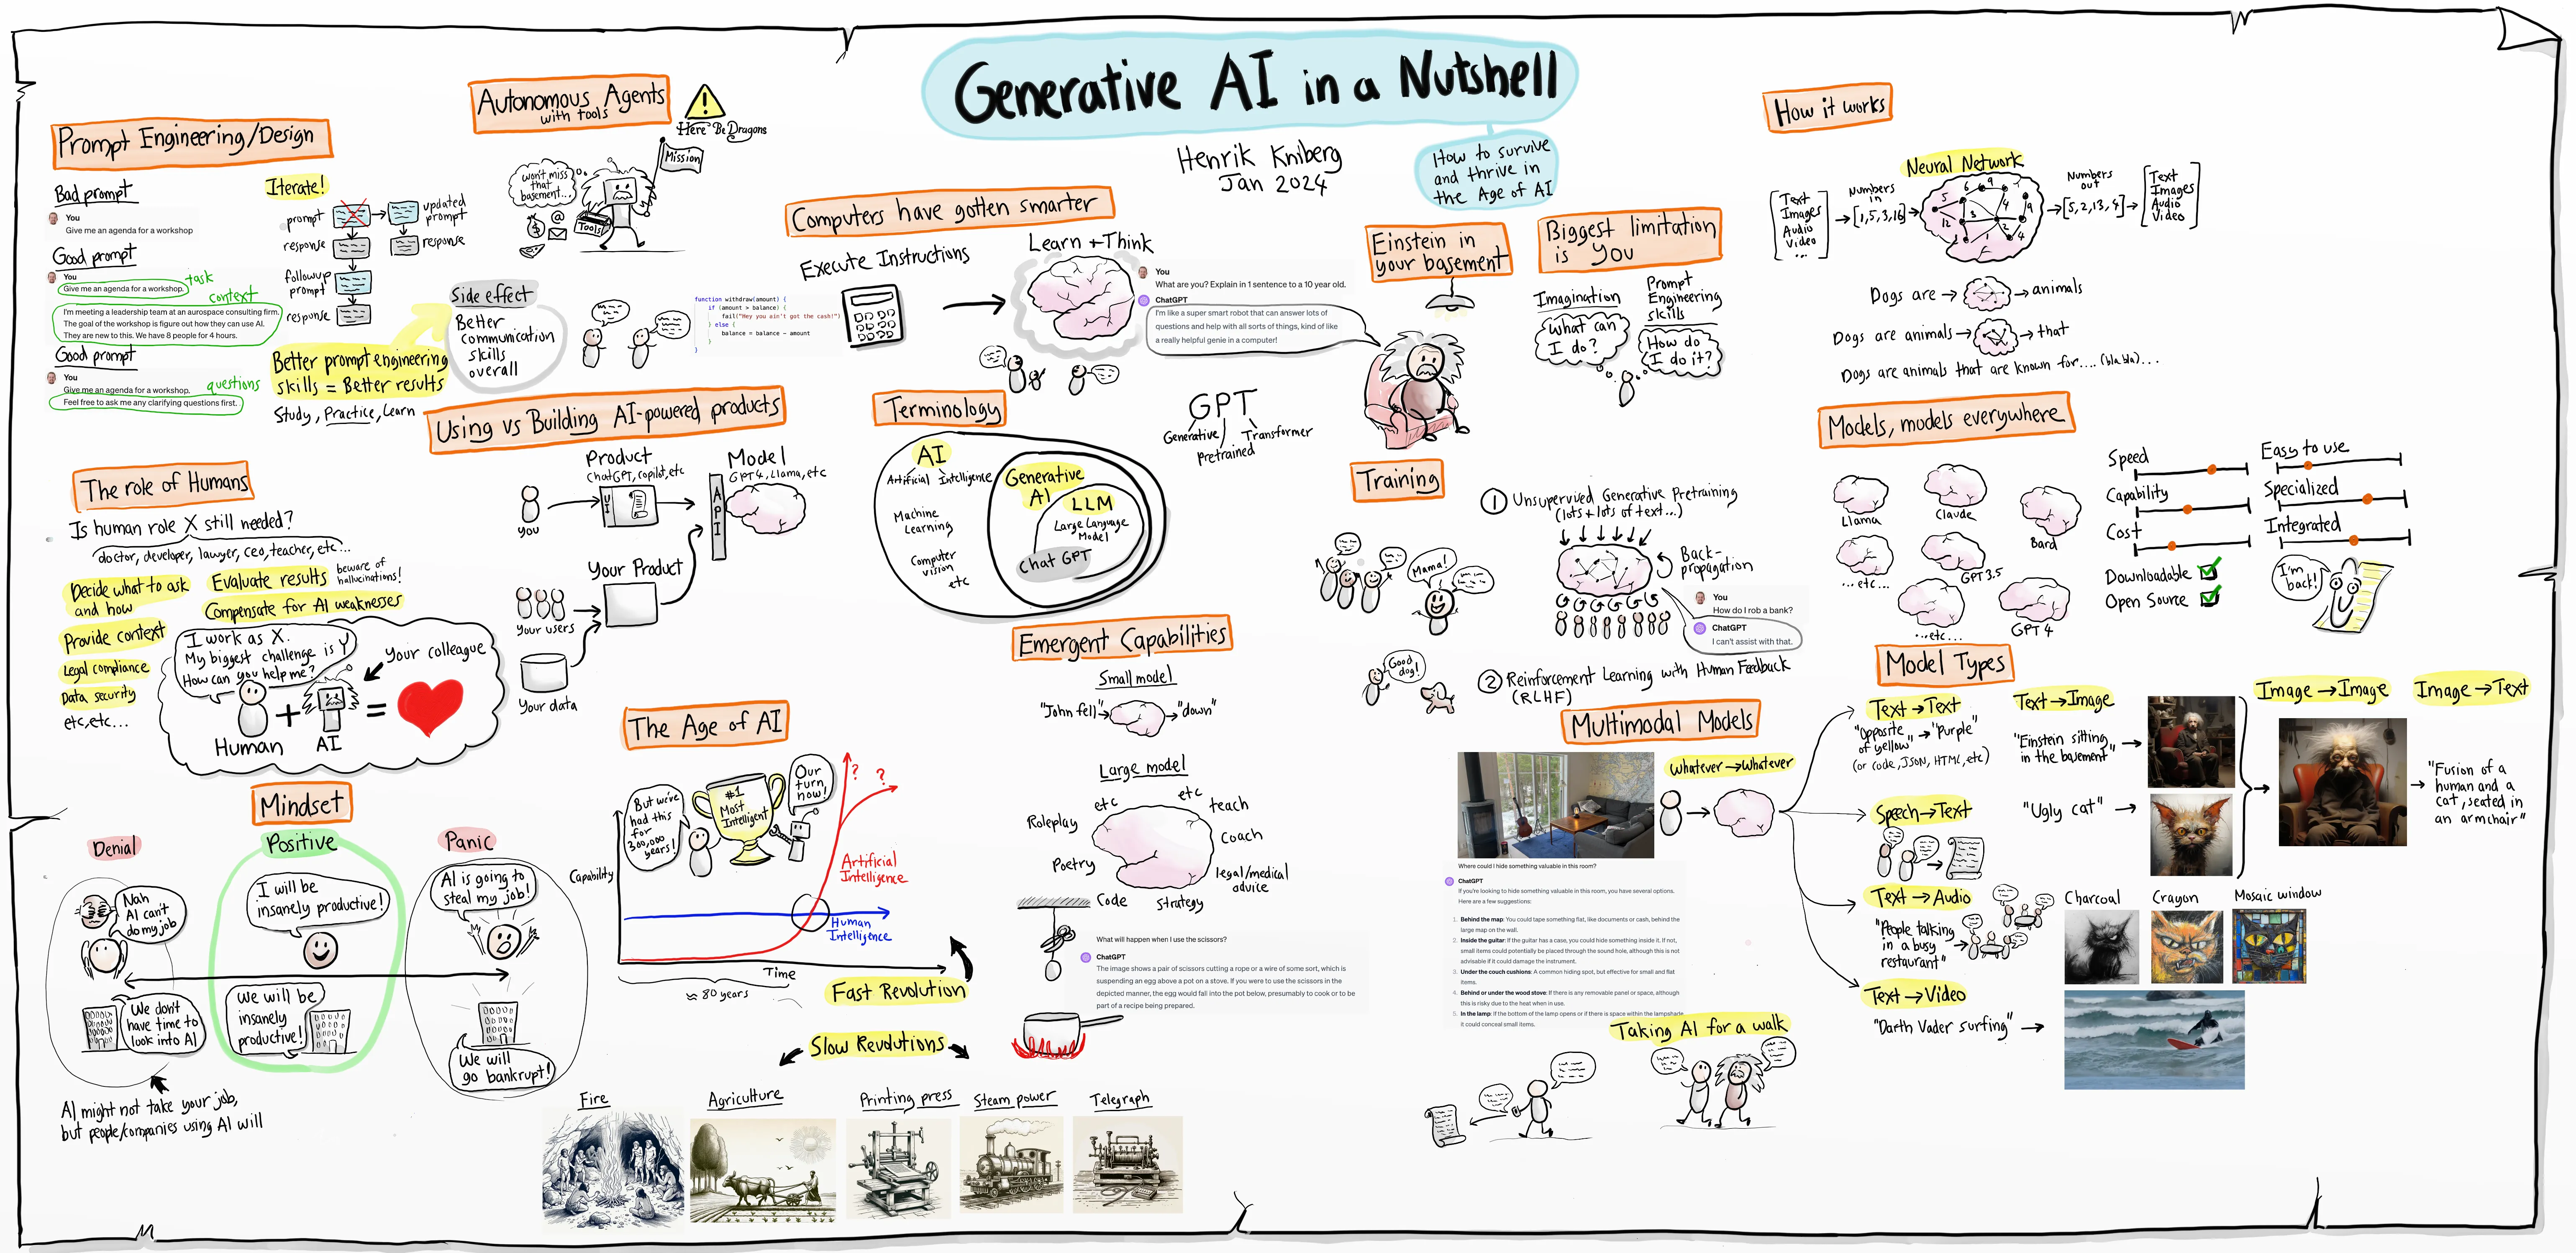 Generative AI in a Nutshell
How to survive
and thrive in
the Age of AI
Henrik Kniberg
Jan 2024
Prompt Engineering/Design
Bad prompt
You
Give me an agenda for a workshop
Good prompt
You
Give me an agenda for a workshop.
task
context
I'm meeting a leadership team at an aurospace consulting firm.
The goal of the workshop is figure out how they can use AI.
They are new to this. We have 8 people for 4 hours.
Good prompt
You
Give me an agenda for a workshop.
questions
Feel free to ask me any clarifying questions first.
Iterate!
prompt
updated
prompt
response
response
followup
prompt
response
Better prompt engineering
skills = Better results
Study, Practice, Learn
Side effect
Better
communication
skills
overall
Autonomous Agents
with tools
Here Be Dragons
Mission
won't miss
that
basement...
@
Tools
Computers have gotten smarter
Execute Instructions
function withdraw(amount) {
if (amount > balance) {
fail("Hey you ain't got the cash!")
} else {
balance = balance - amount
}
}
Learn + Think
You
What are you? Explain in 1 sentence to a 10 year old.
ChatGPT
I'm like a super smart robot that can answer lots of
questions and help with all sorts of things, kind of like
a really helpful genie in a computer!
Einstein in
your basement
Biggest limitation
is You
Imagination
What can
I do?
Prompt
Engineering
skills
How do
I do it?
How it works
Neural Network
Text
Images
Audio
Video
...
Numbers
in
[1,5,3,16]
5
6
9
7
12
3
4
9
1
2
4
Numbers
out
[5,2,13,4]
Text
Images
Audio
Video
Dogs are
animals
Dogs are animals
that
Dogs are animals that are known for.... (bla bla)...
Using vs Building AI-powered products
Product
ChatGPT, copilot, etc
Model
GPT4, Llama, etc
You
UI
API
Your Product
Your users
Your data
Terminology
AI
Artificial Intelligence
Machine
Learning
Computer
vision
etc
Generative
AI
LLM
Large Language
Model
Chat GPT
GPT
Generative
Pretrained
Transformer
Training
1 Unsupervised Generative Pretraining
(lots + lots of text...)
Back-
propagation
Mama!
You
How do I rob a bank?
ChatGPT
I can't assist with that.
Good
dog!
2 Reinforcement Learning with Human Feedback
(RLHF)
Models, models everywhere
Llama
Claude
Bard
...etc...
GPT3.5
...etc...
GPT4
Speed
Capability
Cost
Downloadable
Open Source
Easy to use
Specialized
Integrated
I'm
back!
The role of Humans
Is human role X still needed?
doctor, developer, lawyer, ceo, teacher, etc...
Decide what to ask
and how
Evaluate results
beware of
hallucinations!
Compensate for AI weaknesses
Provide context
Legal compliance
Data security
etc, etc...
I work as X.
My biggest challenge is Y
How can you help me?
Your colleague
+
=
Human
AI
Mindset
Denial
Positive
Panic
Nah
AI can't
do my job
I will be
insanely productive!
AI is going to
steal my job!
We don't
have time to
look into AI
We will be
insanely
productive!
We will
go bankrupt!
AI might not take your job,
but people/companies using AI will
The Age of AI
But we've
had this
for
300,000
years!
#1
Most
Intelligent
Our
turn
now!
?
?
Capability
Artificial
Intelligence
Human
Intelligence
Time
≈ 80 years
Fast Revolution
Slow Revolutions
Fire
Agriculture
Printing press
Steam power
Telegraph
Emergent Capabilities
Small model
"John fell"
"down"
Large model
etc
etc
teach
Roleplay
coach
Poetry
legal/medical
advice
Code
strategy
What will happen when I use the scissors?
ChatGPT
The image shows a pair of scissors cutting a rope or a wire of some sort, which is
suspending an egg above a pot on a stove. If you were to use the scissors in the
depicted manner, the egg would fall into the pot below, presumably to cook or to be
part of a recipe being prepared.
Multimodal Models
Whatever → Whatever
Where could I hide something valuable in this room?
ChatGPT
If you're looking to hide something valuable in this room, you have several options.
Here are a few suggestions:
1. Behind the map: You could tape something flat, like documents or cash, behind the
large map on the wall.
2. Inside the guitar: If the guitar has a case, you could hide something inside it. If not,
small items could potentially be placed through the sound hole, although this is not
advisable if it could damage the instrument.
3. Under the couch cushions: A common hiding spot, but effective for small and flat
items.
4. Behind or under the wood stove: If there is any removable panel or space, although
this is risky due to the heat when in use.
5. In the lamp: If the bottom of the lamp opens or if there is space within the lampshade,
it could conceal small items.
Taking AI for a walk
Model Types
Text → Text
"Opposite
of yellow" → "Purple"
(or code, JSON, HTML, etc)
Text → Image
"Einstein sitting
in the basement"
"Ugly cat"
Image → Image
Image → Text
"Fusion of a
human and a
cat, seated in
an armchair"
Speech → Text
Text → Audio
"People talking
in a busy
restaurant"
Charcoal
Crayon
Mosaic window
Text → Video
"Darth Vader surfing"